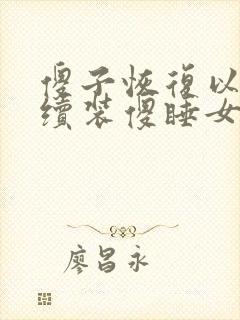 傻子恢復以
續裝傻睡女
廖昌永